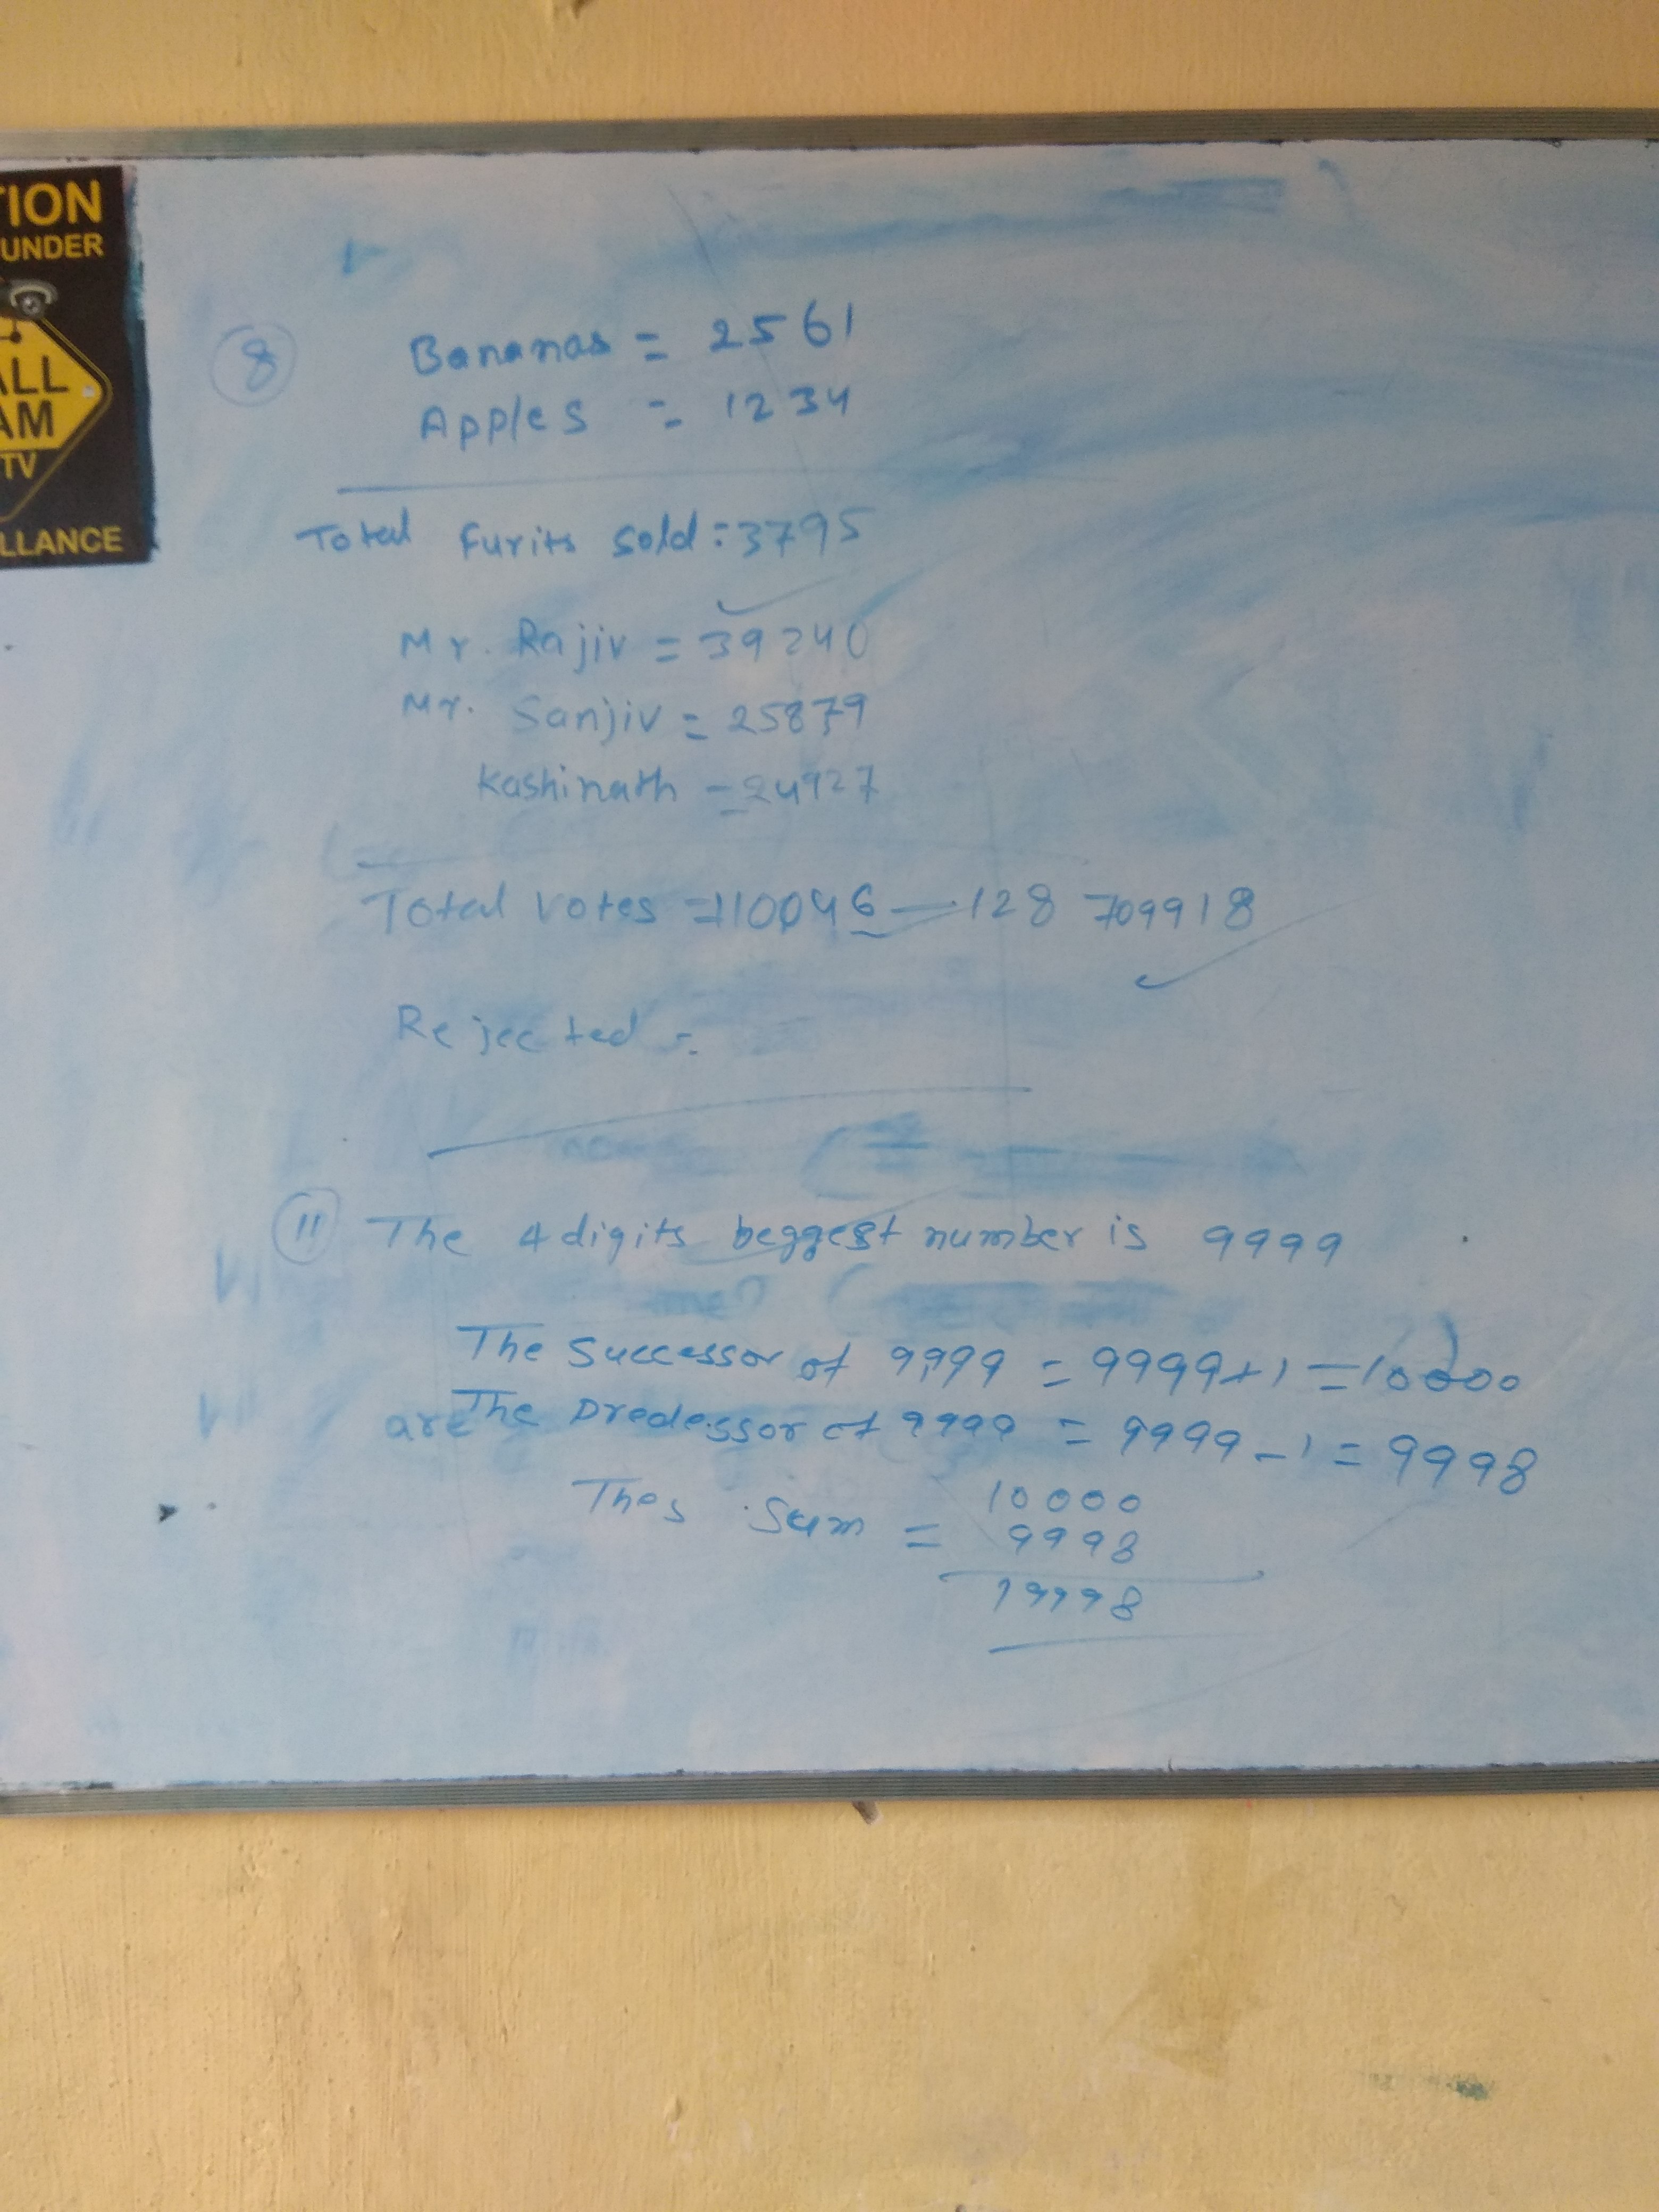 TION
UNDER
ALL
AM
TV
LLANCE
8 Bananas = 2561
Apples = 1234
Total Furits sold = 3795
Mr. Rajiv = 39240
Mr. Sanjiv = 25879
Kashinath = 24927
Total votes = 110046 — 128 709918
Rejected =
11 The 4 digits beggest number is 9999
The Successor of 9999 = 9999+1 = 10000
are The Predessor of 9999 = 9999-1 = 9998
Thes Sum = 10000
9998
19998